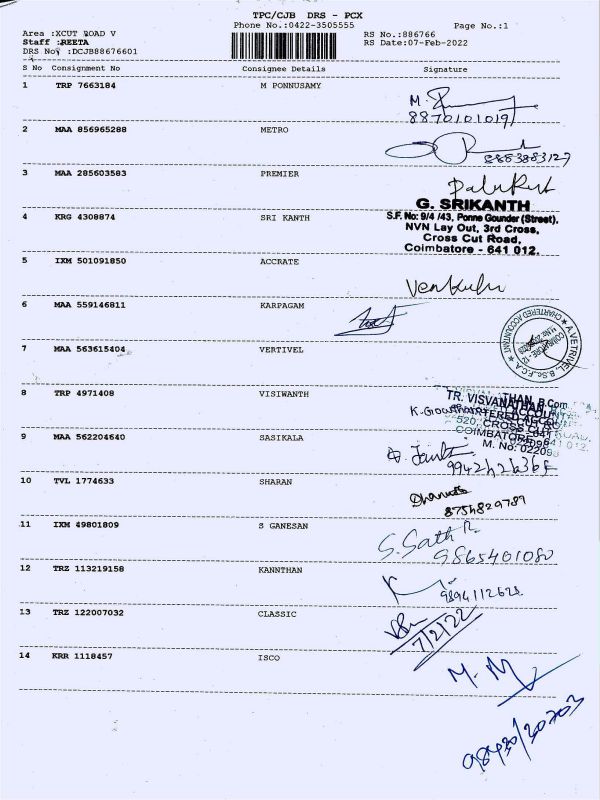 TPC/CJB DRS - PCX
Phone No.:0422-3505555
Page No.:1
Area :XCUT ROAD V
RS No.:886766
Staff :REETA
RS Date:07-Feb-2022
DRS No :DCJB88676601
S No Consignment No Consignee Details Signature
1 TRP 7663184 M PONNUSAMY
8870101019
2 MAA 856965288 METRO
8883883127
3 MAA 285603583 PREMIER
G. SRIKANTH
4 KRG 4308874 SRI KANTH
S.F. No: 9/4 /43, Ponne Gounder (Street),
NVN Lay Out, 3rd Cross,
Cross Cut Road,
Coimbatore - 641 012.
5 IXM 501091850 ACCRATE
6 MAA 559146811 KARPAGAM
A.VETRIVEL, B.Sc.,F.C.A
CHARTERED ACCOUNTANT
COIMBATORE - 12
7 MAA 563615404 VERTIVEL
8 TRP 4971408 VISIWANTH
TR. VISVANATHAN, B.Com
CHARTERED ACCOUNTANT
520, CROSS CUT ROAD,
COIMBATORE - 641 012.
M. No: 022098
9 MAA 562204640 SASIKALA
9942426365
10 TVL 1774633 SHARAN
8754829789
11 IXM 49801809 S GANESAN
S. Sath
9865401080
12 TRZ 113219158 KANNTHAN
9894112628
13 TRZ 122007032 CLASSIC
7/2/22
14 KRR 1118457 ISCO
M. M
98430/20703